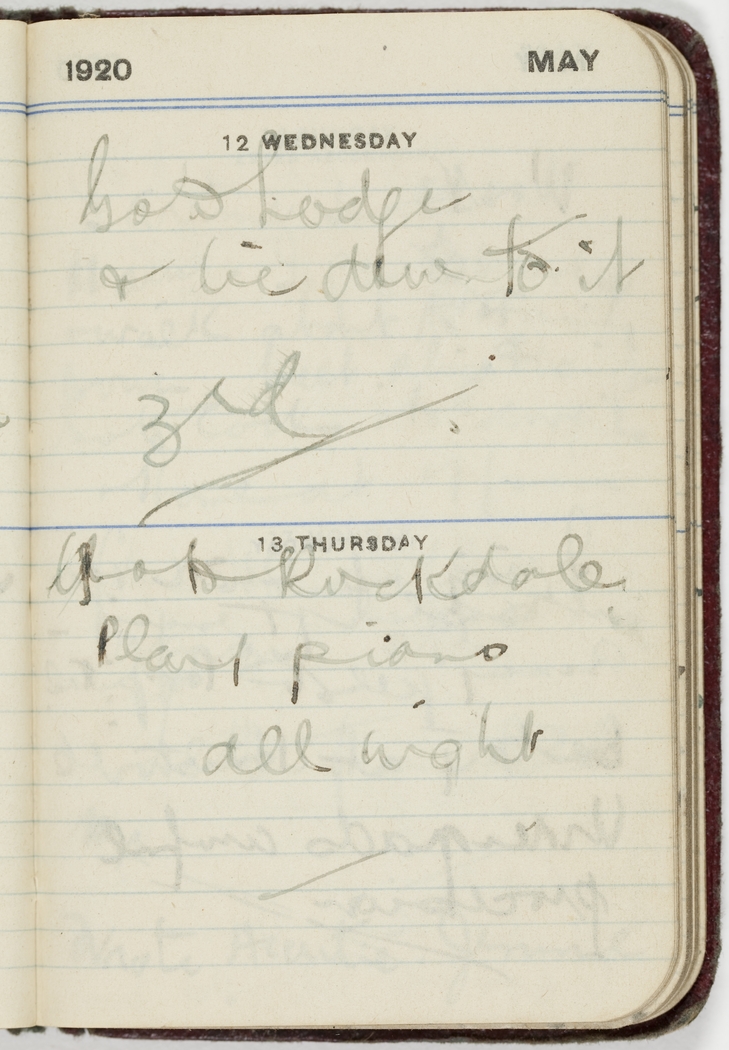 1920 MAY
12 WEDNESDAY
Go to Lodge
& tie down to it
3rd
13 THURSDAY
Go to Rockdale
Play piano
all night